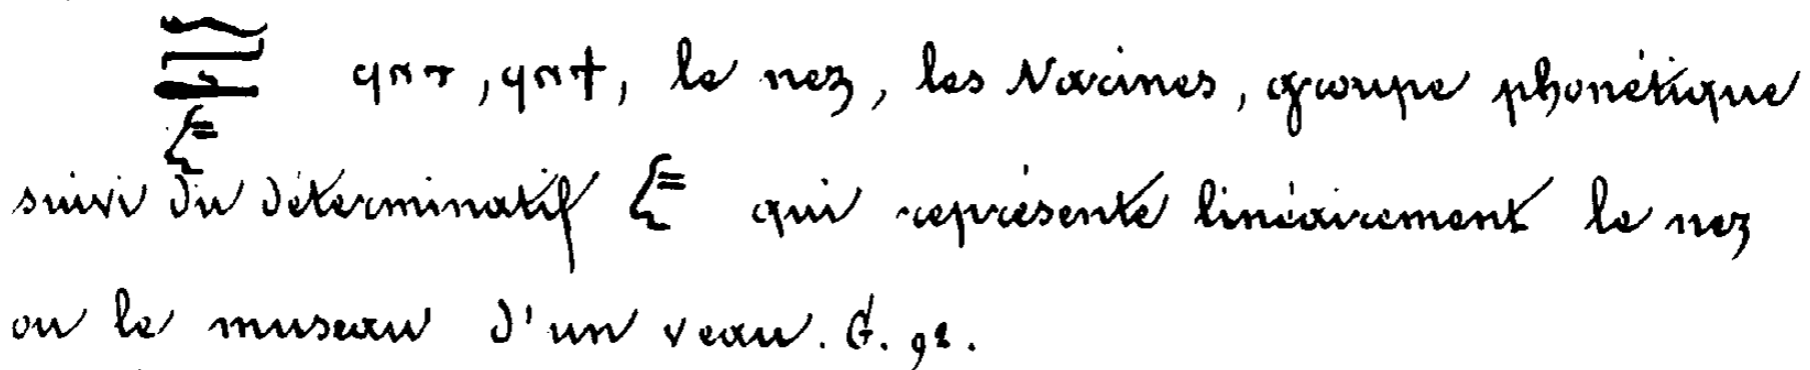 ϥⲛⲧ, ϥⲛϯ, le nez, les Narines, groupe phonétique
suivi du déterminatif qui représente linéairement le nez
ou le museau d'un veau. G. 92.